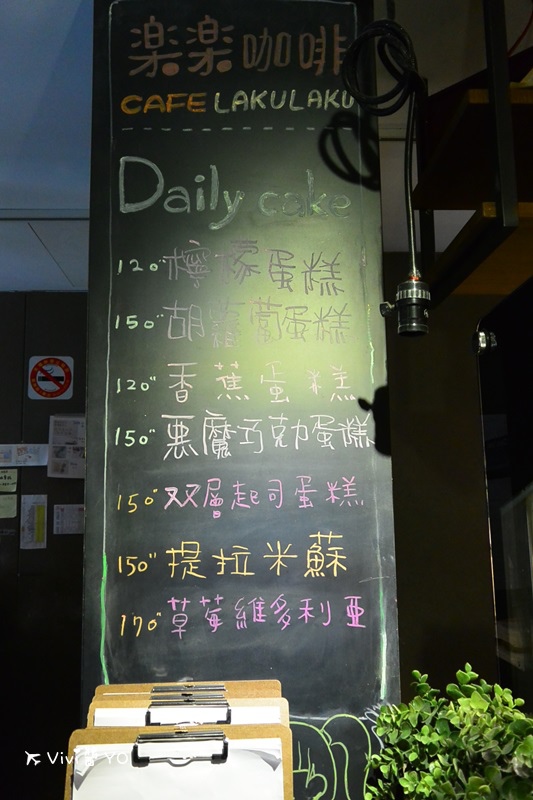 楽楽咖啡
CAFE LAKULAKU
Daily cake
120" 檸檬蛋糕
150" 胡蘿蔔蛋糕
120" 香蕉蛋糕
150" 悪魔巧克力蛋糕
150" 双層起司蛋糕
150" 提拉米蘇
170" 草莓維多利亞